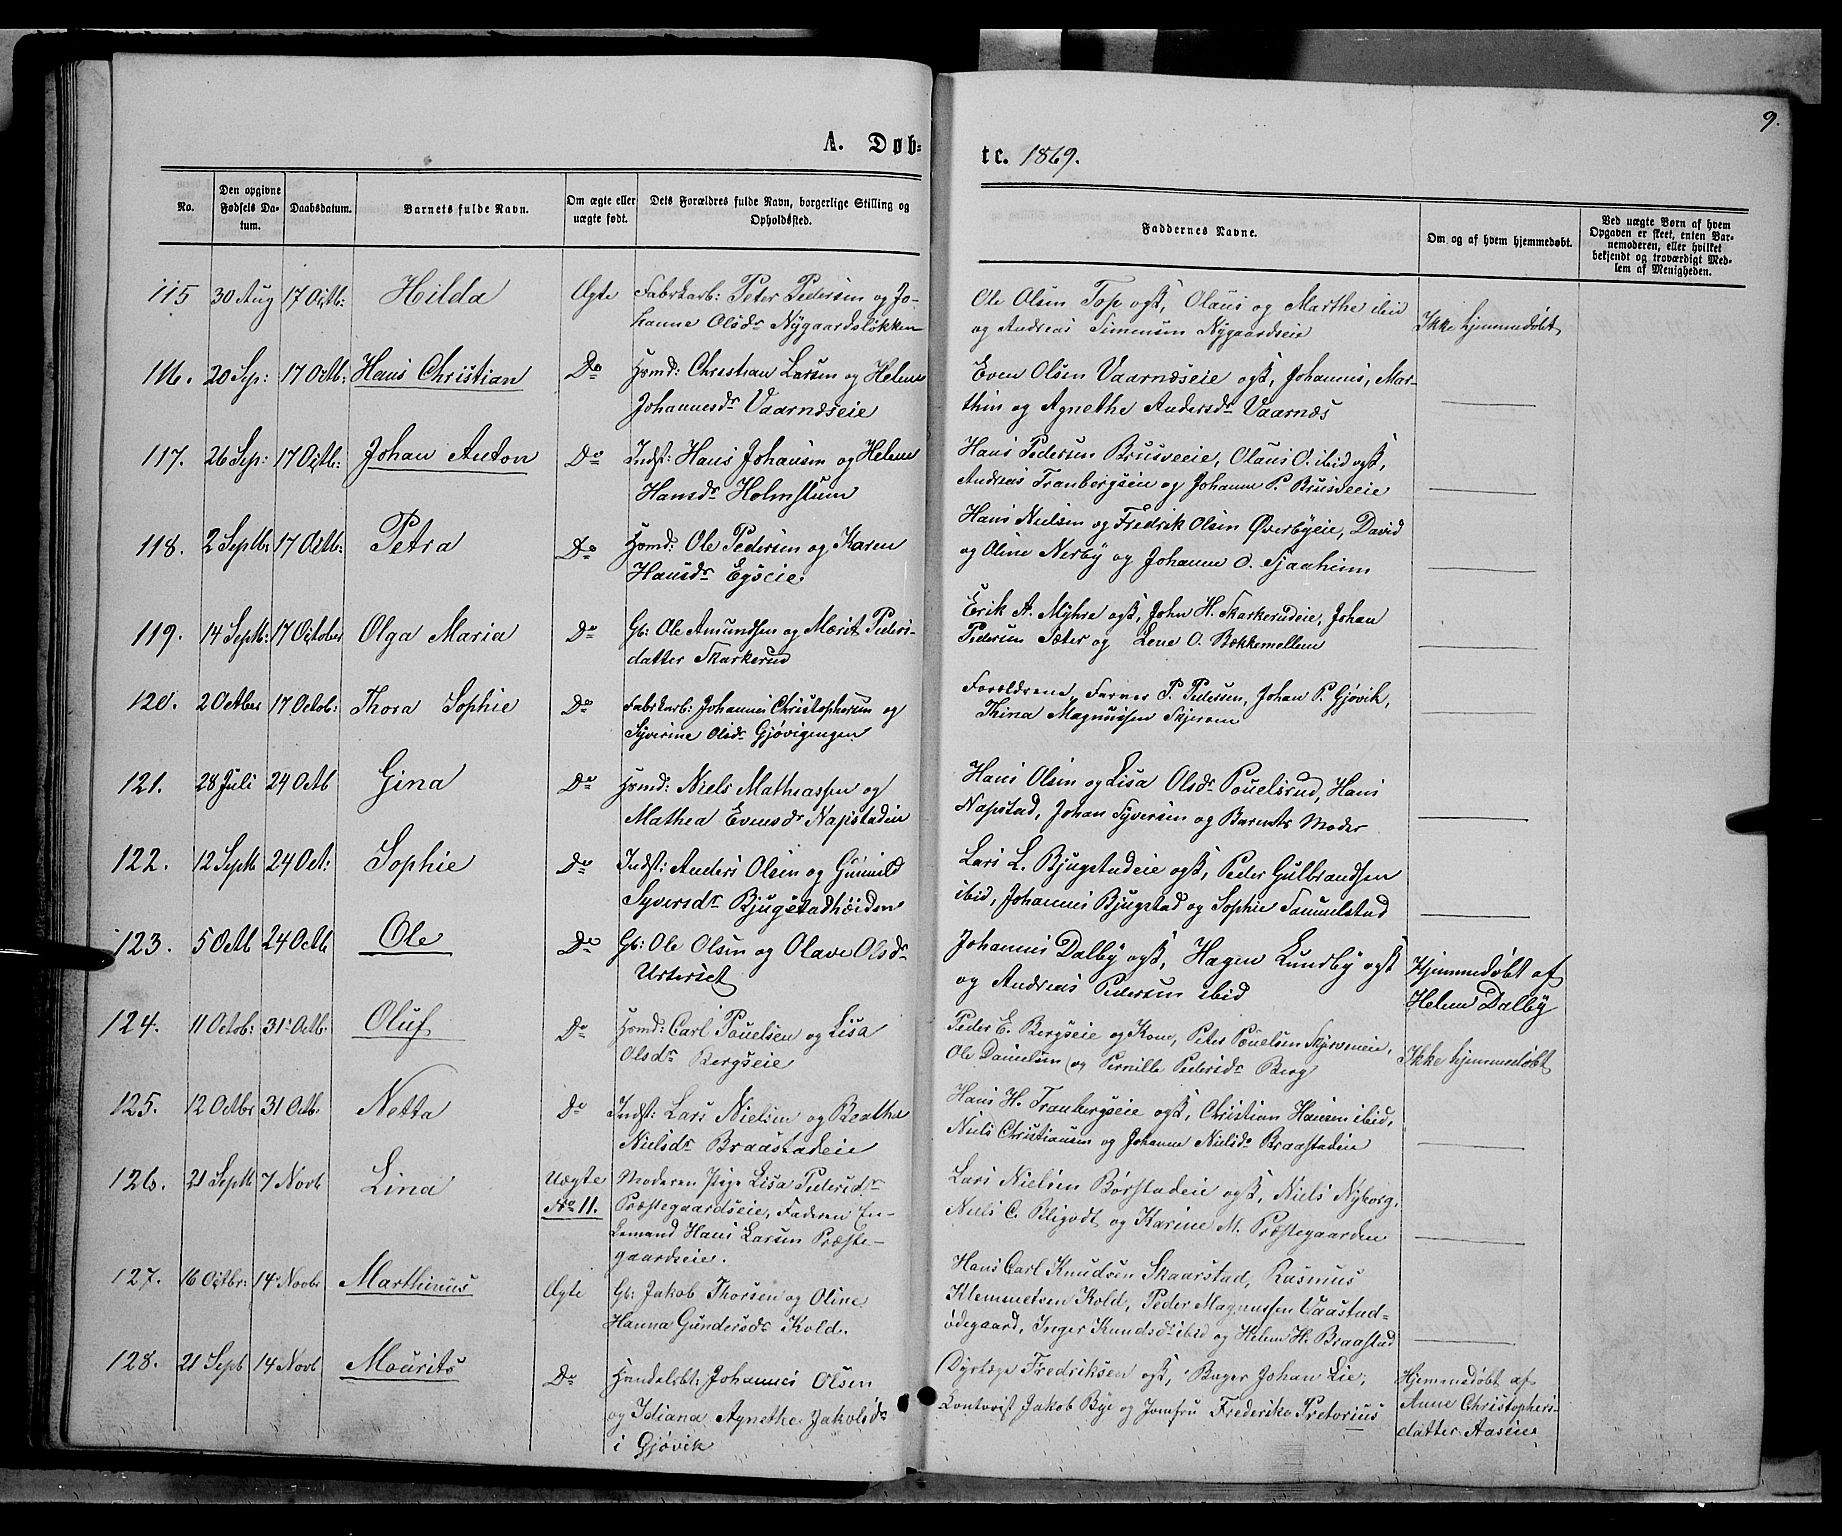 9.
A. Døb-
te. 1869.
No.
Den opgivne Fødsels Da-
tum.
Daabsdatum.
Barnets fulde Navn.
Om ægte eller
uægte født.
Dets Forældres fulde Navn, borgerlige Stilling og
Opholdssted.
Faddernes Navne.
Om og af hvem hjemmedøbt.
Ved uægte Børn af hvem
Opgaven er skeet, enten Bar-
nemoderen, eller hvilket
bekjendt og troværdigt Med-
lem af Menigheden.
115 30 Aug 17 Octb: Hilda Ægte Fabrkarb: Peter Pedersen og Jo-
hanne Olsdr Nygaardsløkken
Ole Olsen Top og K, Olaus og Marthe ibid
og Andreas Simensen Nygaardseie
Ikke hjemmedøbt
116. 20 Sep: 17 Octb: Hans Christian Do Hsmd: Christian Larsen og Helene
Johannesdr Vaarnæseie
Even Olsen Vaarnæseie og K, Johannes, Mar-
thin og Agnethe Andersdr Vaarnæs
117. 26 Sep: 17 Octb: Johan Anton Do Indst: Hans Johansen og Helene
Hansdr Holmstuen
Hans Pedersen Brusveeie, Olaus O. ibid og K,
Andreas Tranbergseie og Johanne P. Brusveeie
118. 2 Septbr 17 Octb: Petra Do Hsmd: Ole Pedersen og Karen
Hansdr Egseie
Hans Nielsen og Fredrik Olsen Øverbyeie, David
og Oline Nerby og Johanne O. Sjaaheim
119. 14 Septb: 17 October Olga Maria Do Gb: Ole Amundsen og Marit Peders-
datter Skarkerud
Erik A. Myhre og K, John H. Skarkerudeie, Johan
Pedersen Sæter og Lene O. Bækkemellem
120. 2 Octber 17 Octob: Thora Sophie Do Fabrkarb: Johannes Christophersen og
Syverine Olsdr Gjøvigengen
Forældrene, Farver P. Pedersen, Johan P. Gjøvik,
Thina Magnussen Skjeren
121. 28 Juli 24 Octb Gina Do Hsmd: Niels Mathiassen og
Mathea Evensdr Napstadeie
Hans Olsen og Lisa Olsdr Pouelsrud, Hans
Napstad, Johan Syversen og Barnets Moder
122. 12 Septb 24 Oct: Sophie Do Indst: Anders Olsen og Gunnild
Syversdr Bjugstadhøiden
Lars L. Bjugstadeie og K, Peder Gulbrandsen
ibid, Johannes Bjugstad og Sophie Samuelstad
123. 5 Octb 24 Octb Ole Do Gb: Ole Olsen og Olave Olsdr
Urterset
Johannes Dalby og K, Hagen Lundby og K
og Andreas Pedersen ibid
Hjemmedøbt af
Helene Dalby
124. 11 Octob: 31 Octb: Oluf Do Hsmd: Carl Pouelsen og Lisa
Olsdr Bergseie
Peder E. Bergseie og Kone, Peter Pouelsen Skjerveneie,
Ole Danielsen og Pernille Pedersdr Berg
Ikke hjemmedøbt
125. 12 Octbr 31 Octb: Netta Do Indst: Lars Nielsen og Beathe
Nielsdr Braastadeie
Hans H. Tranbergseie og K, Christian Hansen ibid,
Niels Christiansen og Johanne Nielsdr Braastadeie
126. 21 Septb 7 Novb Lina Uægte
No 11.
Moderen Pige Lisa Pedersdr
Præstegaardseie, Faderen En-
kemand Hans Larsen Præste-
gaardseie.
Lars Nielsen Børstadeie og K, Niels Nyborg,
Niels C. Bligodt og Karine M. Præstegaarden
127. 16 Octbr: 14 Novbr Marthinus Ægte Gb: Jakob Thorsen og Oline
Hanna Gundersdr Kold.
Hans Carl Knudsen Skaarstad, Rasmus
Klemmetsen Kold, Peder Magnussen Vaastad-
ødegaard, Inger Knudsdr ibid og Helene H. Braastad
128. 21 Sepb 14 Novb Mourits Do Handelsbt: Johannes Olsen
og Idiana Agnethe Jakobsdr
i Gjøvik
Dyrlæge Fredriksen og K, Bager Johan Lie,
Contorist Jakob Bye og Jomfru Frederike Pretorius
Hjemmedøbt af
Anne Christophers-
datter Aasene